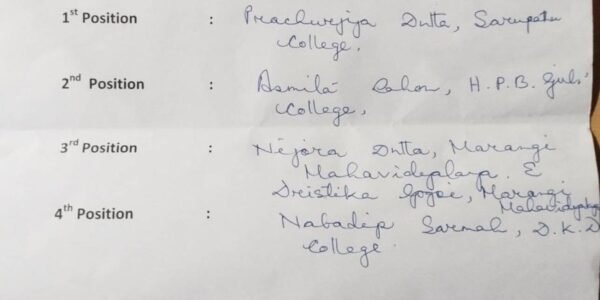 1st Position : Prachurjya Dutta, Sarupathar
College.
2nd Position : Asmita Gohon, H.P.B. Girls'
College,
3rd Position : Nejora Dutta, Marangi
Mahavidyalaya. &
Dristika Gogoi, Marangi
Mahavidyalaya
4th Position : Nabadip Sarmah, D.K.D
College.